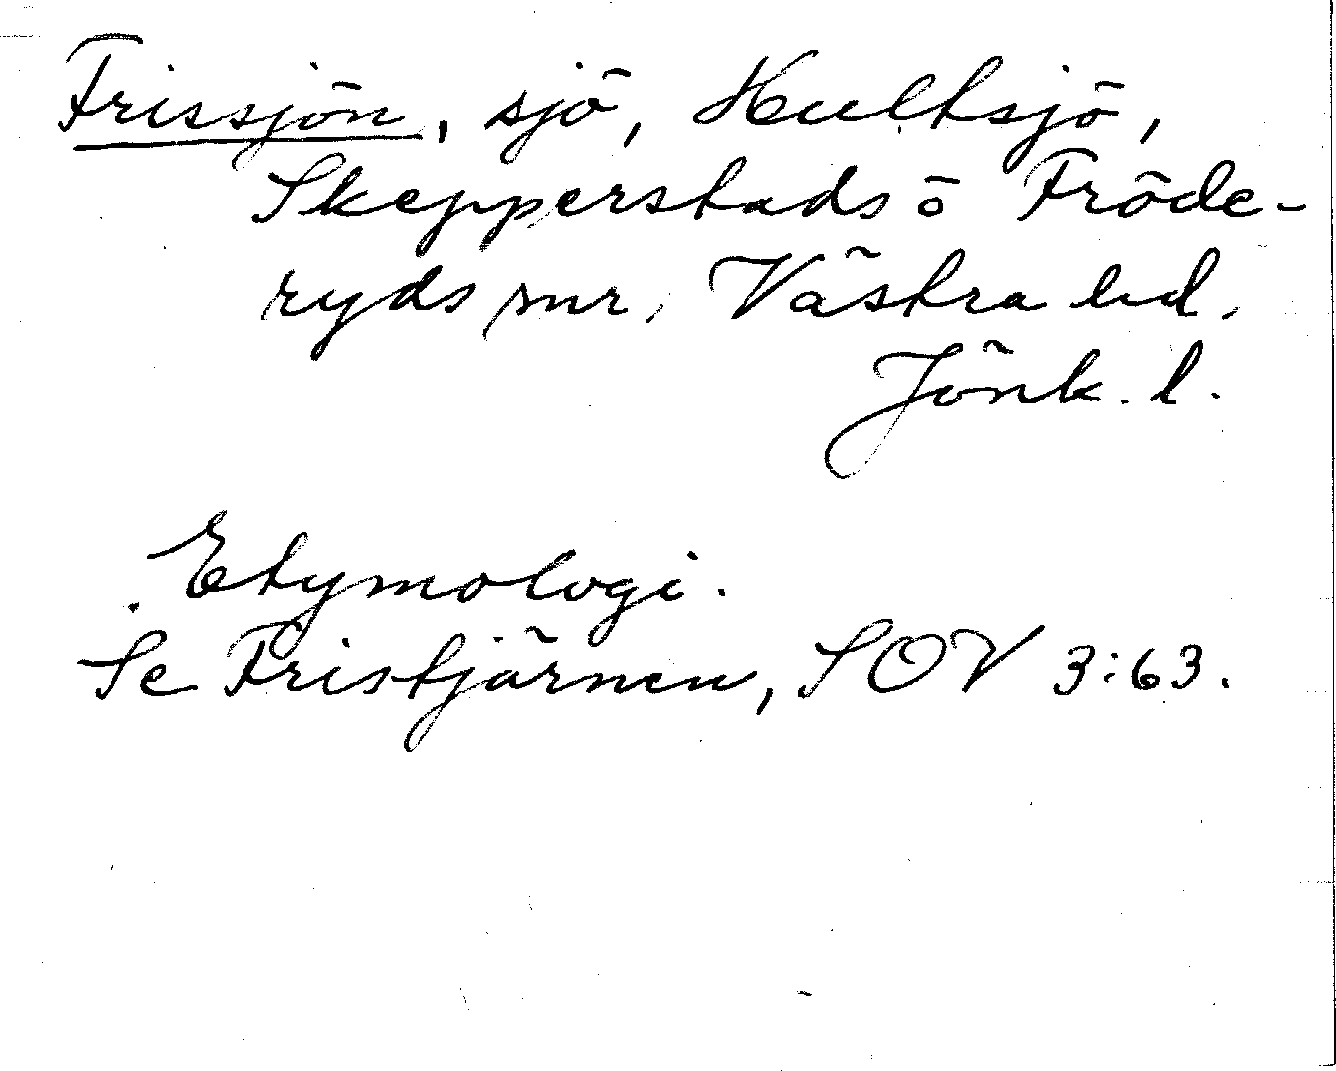 Frissjön, sjö, Hultsjö,
Skepperstads o Fröde-
ryds snr, Västra hd.
Jönk. l.
Etymologi.
Se Fristjärnen, SOV 3:63.